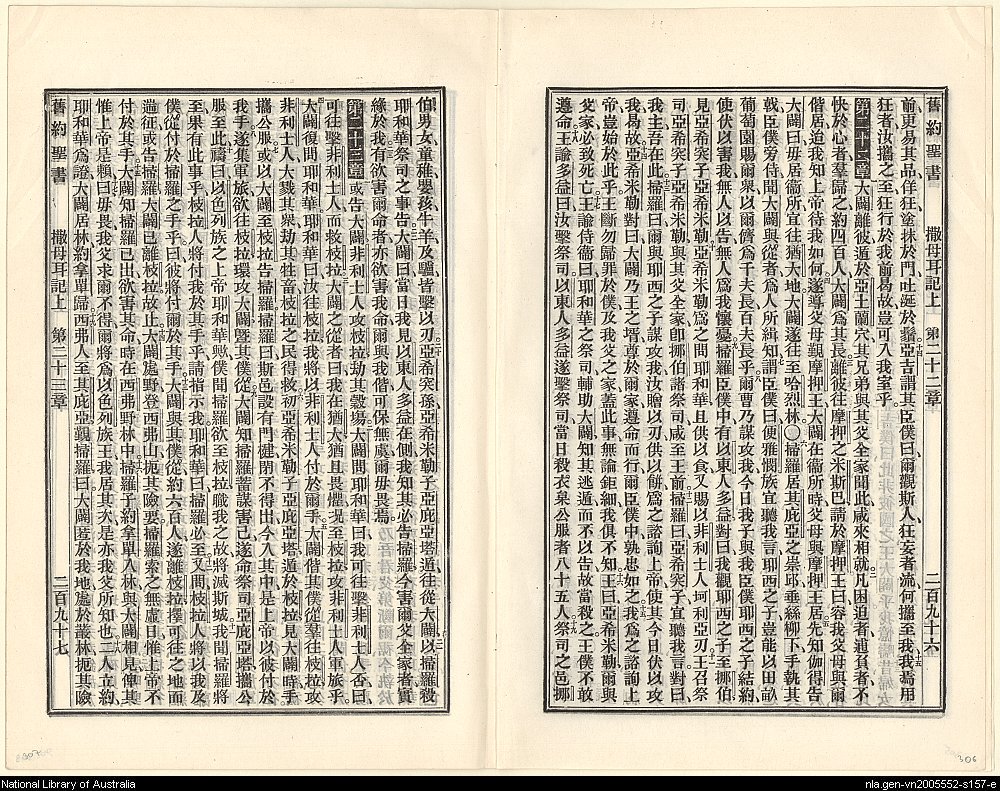 舊約聖書 撒母耳記上 第二十二章 二百九十六
前更易其品佯狂塗抹於門吐涎於鬚亞吉謂其臣僕曰爾觀斯人狂妄者流何攜至我我焉用
狂者汝攜之至狂行於我前曷故豈可入我室乎
第二十二章 大闢離彼遁於亞土蘭穴其兄弟與其父全家聞此咸來相就凡困迫者逋負者不
快於心者羣歸之約四百人大闢爲其長離彼往摩押之米斯巴請於摩押王曰容我父母與爾
偕居迨我知上帝待我如何遂導父母覲摩押王大闢在衞所時父母與摩押王居先知伽得告
大闢曰毋居衞所宜往猶大地大闢遂往至哈烈林〇掃羅居其庇亞之崇邱垂絲柳下手執其
戟臣僕旁侍聞大闢與從者爲人所緝知謂臣僕曰便雅憫族宜聽我言耶西之子豈能以田畝
葡萄園賜爾衆以爾儕爲千夫長百夫長乎爾曹乃謀攻我今日我子與我臣僕耶西之子結約
使伏以害我無人以告無人爲我懷憂掃羅臣僕中有以東人多益對曰我觀耶西之子至挪伯
見亞希突子亞希米勒亞希米勒爲之間耶和華且供以食又賜以非利士人坷利亞刃王召祭
司亞希突子亞希米勒與其父全家即挪伯諸祭司咸至王前掃羅曰亞希突子宜聽我言對曰
我主吾在此掃羅曰爾與耶西之子謀攻我汝贈以刃供以餅爲之諮詢上帝使其今日伏以攻
我曷故亞希米勒對曰大闢乃王之壻尊於爾家遵命而行爾臣僕中孰忠如之我爲之諮詢上
帝豈始於此乎王斷勿歸罪於僕及我父之家蓋此事無論鉅細我俱不知王曰亞希米勒爾與
父家必致死亡王諭侍衞曰耶和華之祭司輔助大闢知其逃遁而不以告故當殺之王僕不敢
遵命王諭多益曰汝擊祭司以東人多益遂擊祭司當日殺衣枲公服者八十五人祭司之邑挪
伯男女童稚嬰孩牛羊及驢皆擊以刃亞希突孫亞希米勒子亞庇亞塔遁往從大闢以掃羅殺
耶和華祭司之事告大闢曰當日我見以東人多益在側我知其必告掃羅今害爾父全家者實
緣於我有欲害爾命者亦欲害我命爾與我偕可保無虞爾毋畏焉
第二十三章 或告大闢非利士人攻枝拉劫其穀場大闢問耶和華曰我可往擊非利士人否曰
可往擊非利士人而救枝拉大闢之從者曰我在猶大猶且畏懼况至枝拉攻非利士人軍旅乎
大闢復問耶和華耶和華曰汝往枝拉我將以非利士人付於爾手大闢偕其僕從羣往枝拉攻
非利士人大戮其衆劫其牲畜枝拉之民得救初亞希米勒子亞庇亞塔遁於枝拉見大闢時手
攜公服或以大闢至枝拉告掃羅掃羅曰斯邑設有門楗閉不得出今入其中是上帝以彼付於
我手遂集軍旅欲往枝拉環攻大闢暨其僕從大闢知掃羅蓄謀害己遂命祭司亞庇亞塔攜公
服至此禱曰以色列族之上帝耶和華歟僕聞掃羅欲至枝拉職我之故將滅斯城我聞掃羅將
至果有此事乎枝拉人將付我於其手乎請指示我耶和華曰掃羅必至又問枝拉人將以我及
僕從付於掃羅之手乎曰彼將付爾於其手大闢與其僕從約六百人遂離枝拉擇可往之地而
遄征或告掃羅大闢已離枝拉故止大闢處野登西弗山扼其險要掃羅索之無虛日惟上帝不
付於其手大闢知掃羅已出欲害其命時在西弗野林中掃羅子約拿單入林與大闢相見俾其
惟上帝是賴曰毋畏我父求爾不得爾將爲以色列族王我居其次是亦我父所知也二人立約
耶和華爲證大闢居林約拿單歸西弗人至其庇亞覲掃羅曰大闢匿於我地處於叢林扼其險
舊約聖書 撒母耳記上 第二十三章 二百九十七
National Library of Australia
nla.gen-vn2005552-s157-e
306